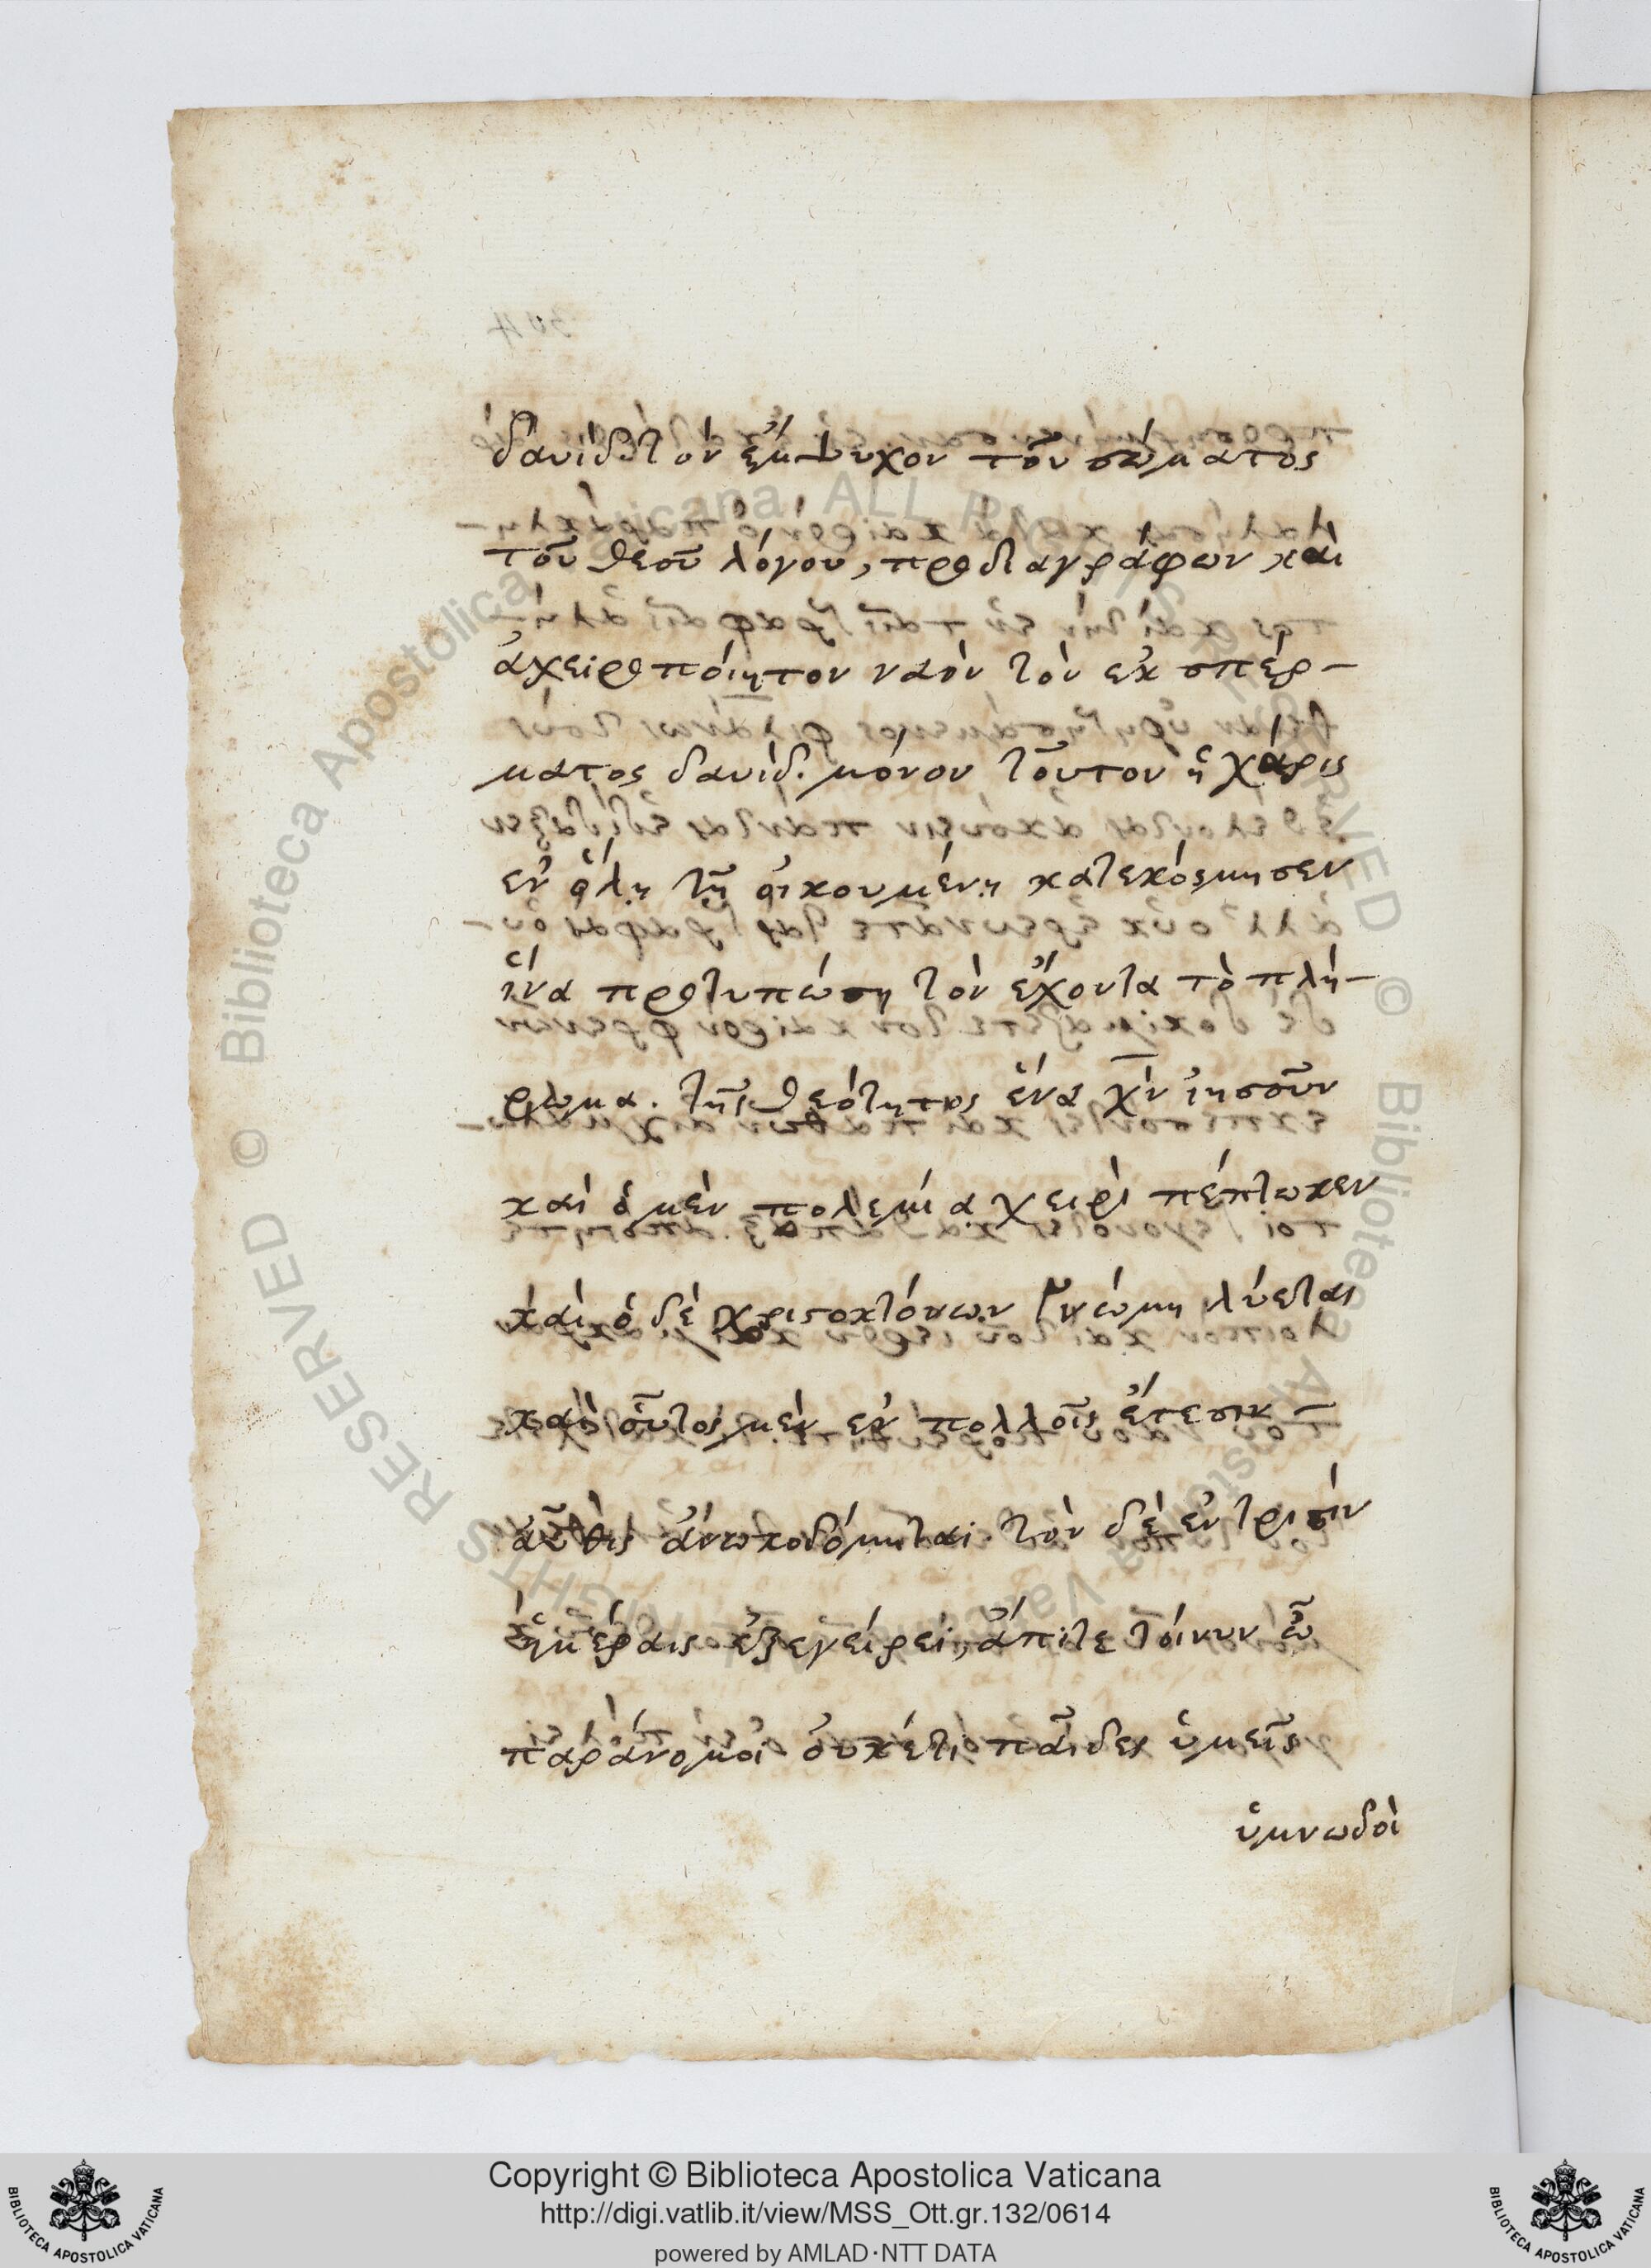 δαυίδ τὸν ἔμψυχον τοῦ σώματος
τοῦ θεοῦ λόγου, προδιαγράφων καὶ
ἀχειροποίητον ναὸν τὸν ἐκ σπέρ–
ματος δαυίδ. μόνον τοῦτον ἡ χάρις
ἐν ὅλῃ τῇ οἰκουμένῃ κατεκόσμησεν
ἵνα προτυπώσῃ τὸν ἔχοντα τὸ πλή–
ρωμα. τῆς θεότητος ἕνα χν ἰησοῦν
καὶ ὁ μὲν πολεμίᾳ χειρὶ πέπτωκεν
καὶ ὁ δὲ χριστοκτόνων γνώμῃ λύεται
καὶ οὗτος μὲν ἐν πολλοῖς ἔτεσιν –
αὖθις ἀνωκοδόμηται. τὸν δὲ ἐν τρισὶν
ἡμέραις ἐξεγείρει, ἄπιτε τοίνυν ὦ
παράνομοι οὐκέτι παῖδες ὑμεῖς
ὑμνωδοὶ
Copyright © Biblioteca Apostolica Vaticana
http://digi.vatlib.it/view/MSS_Ott.gr.132/0614
powered by AMLAD·NTT DATA
BIBLIOTECA APOSTOLICA VATICANA
BIBLIOTECA APOSTOLICA VATICANA